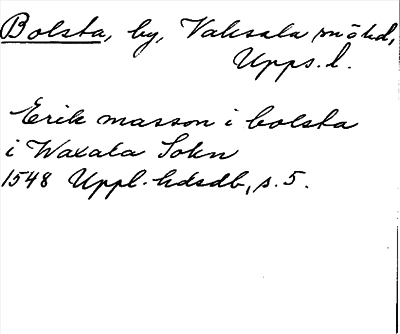 Bolsta, by, Vaksala snöhd,
Upps. l.
Erik masson i bolsta
i Waxala Sokn
1548 Uppl. hdsdb, s. 5.